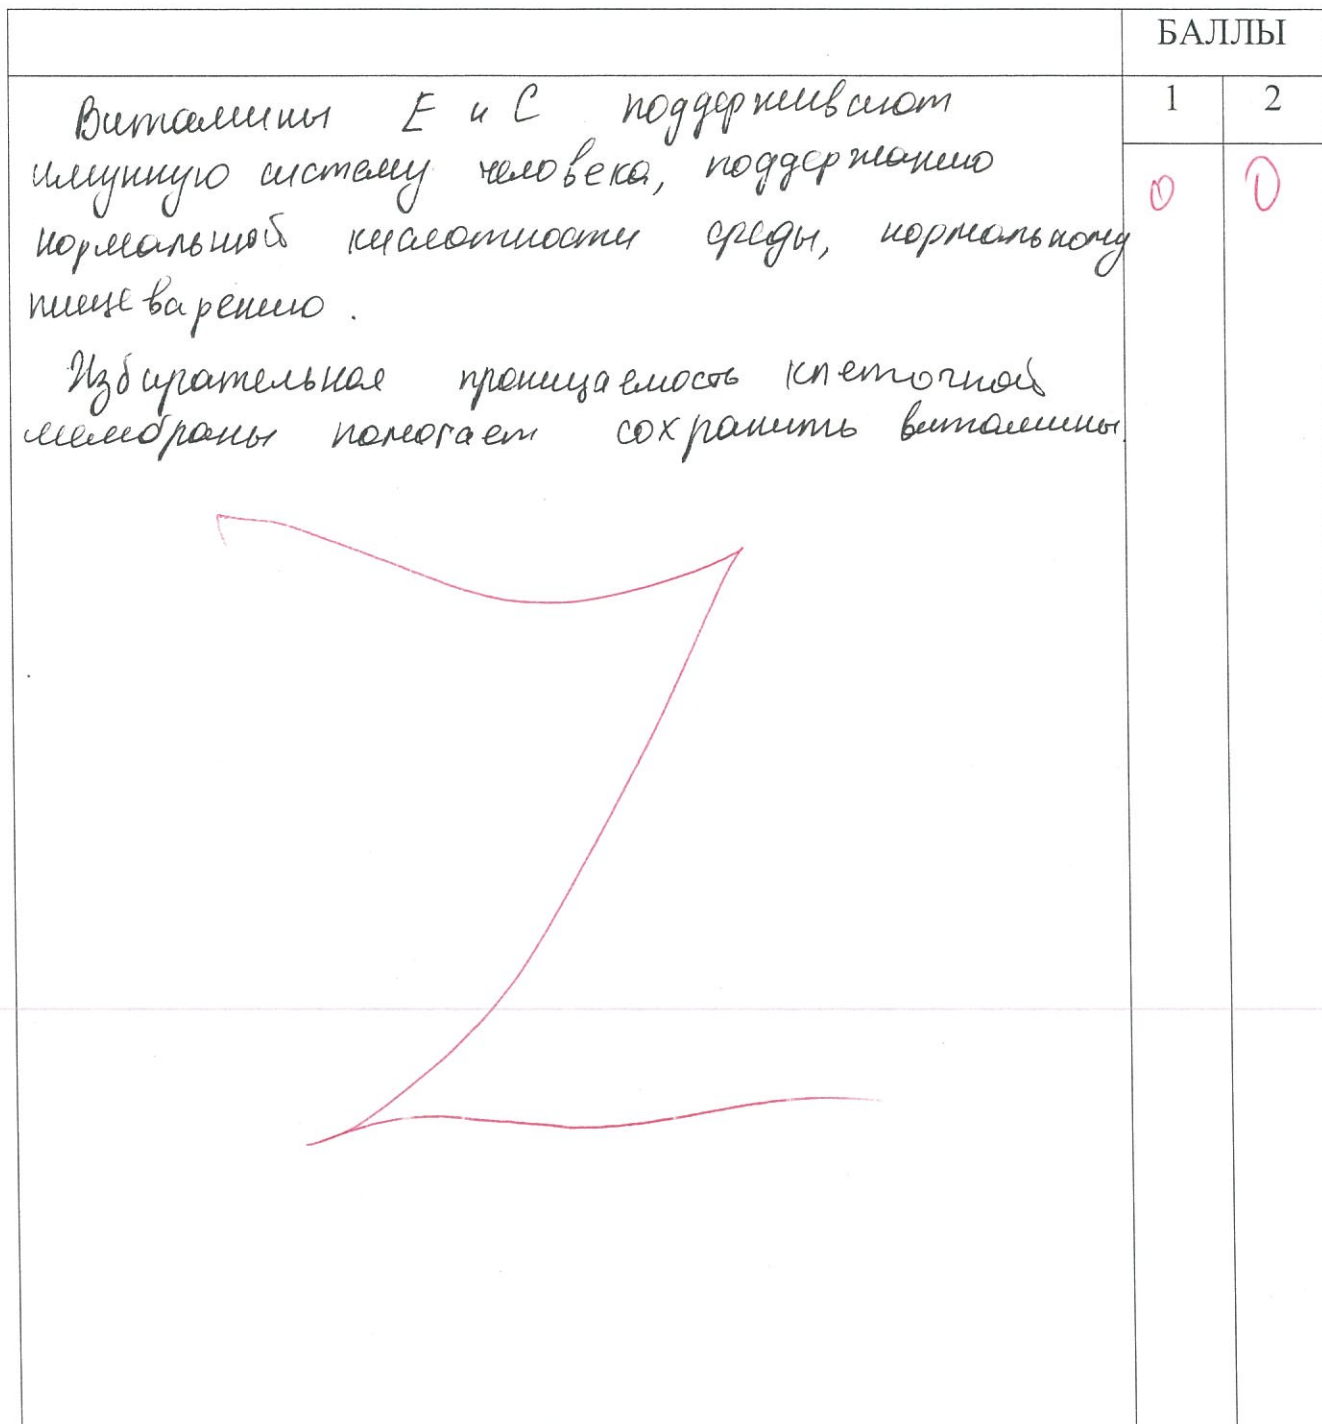 БАЛЛЫ
1 2
Витамины Е и С поддерживают
имунную систему человека, поддержанию
нормальной кислотности среды, нормальному
пищеварению.
0 0
Избирательная проницаемость клеточной
мембраны помогает сохранить витамины.